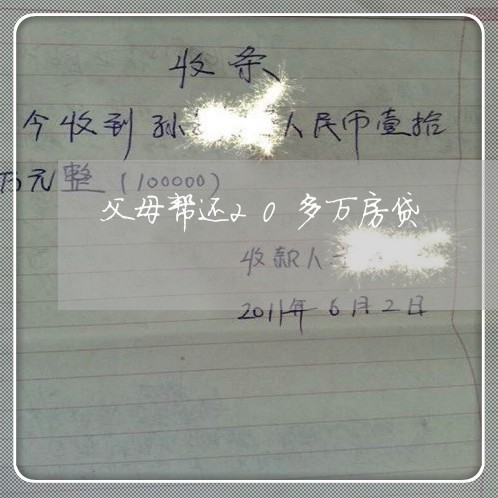 收条
今收到孙 人民币壹拾
万元整(100000)
父母帮还20多万房贷
收款人
2011年6月2日